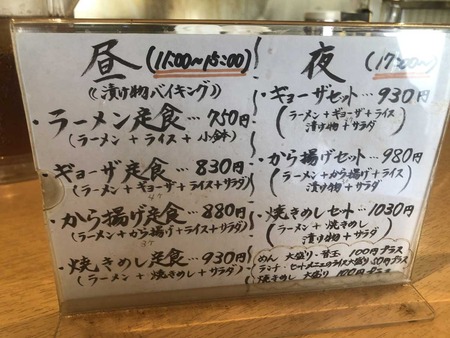 昼 (11:00〜15:00)
《漬け物バイキング》
・ラーメン定食…750円
(ラーメン+ライス+小鉢)
・ギョーザ定食…830円
(ラーメン+ギョーザ+ライス+サラダ)
・から揚げ定食…880円
(ラーメン+から揚げ+ライス+サラダ)
・焼きめし定食…930円
(ラーメン+焼きめし+サラダ)
夜 (17:00〜)
・ギョーザセット…930円
(ラーメン+ギョーザ+ライス
漬け物+サラダ)
・から揚げセット…980円
(ラーメン+から揚げ+ライス
漬け物+サラダ)
・焼きめしセット…1030円
(ラーメン+焼きめし
漬け物+サラダ)
めん 大盛り・替玉 100円プラス
ランチ・セットメニューのライス大盛り 50円プラス
焼きめし 大盛り 100円プラス